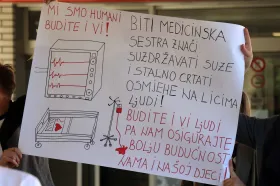 MI SMO HUMANI
BUDITE I VI!
BITI MEDICINSKA
SESTRA ZNAČI
SUZDRŽAVATI SUZE
I STALNO CRTATI
OSMIJEHE NA LICIMA
LJUDI!
BUDITE I VI LJUDI
PA NAM OSIGURAJTE
BOLJU BUDUĆNOST
NAMA I NAŠOJ DJECI